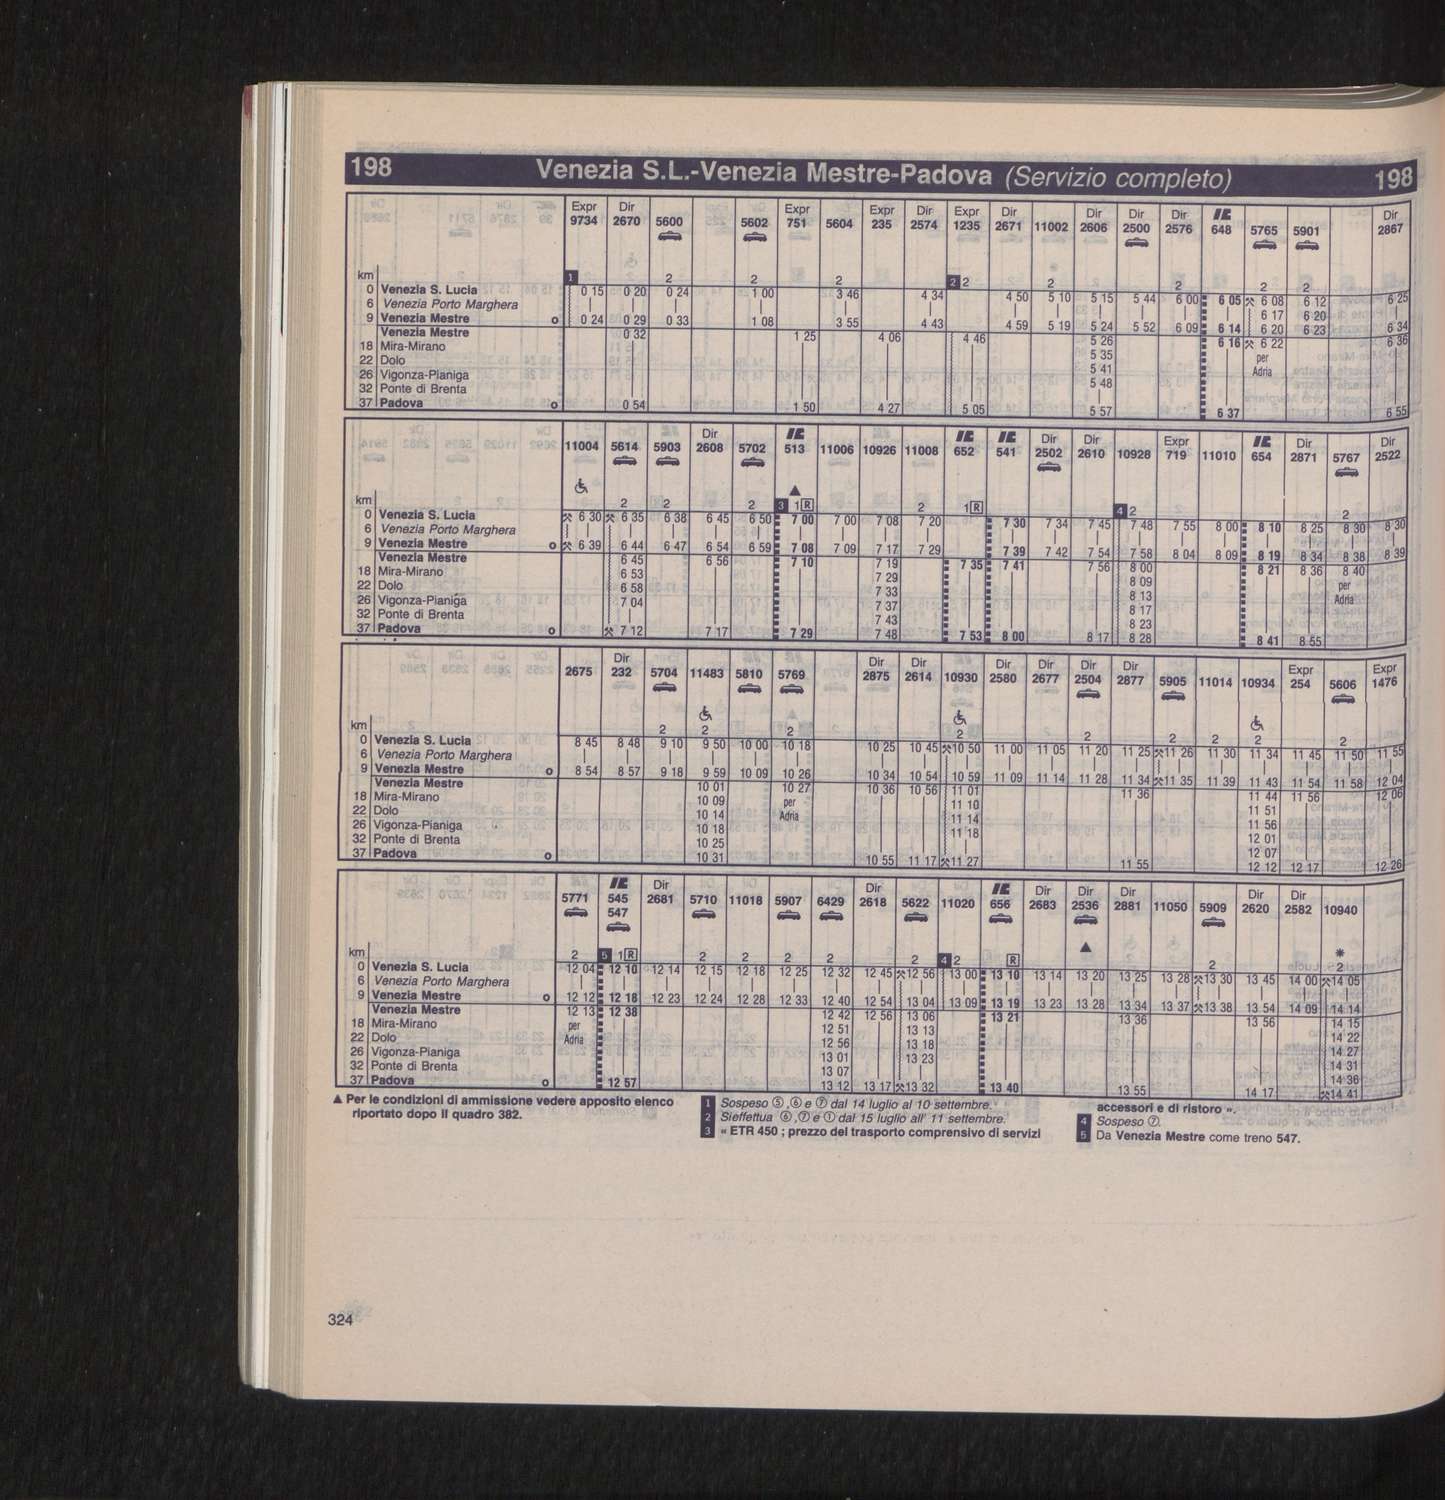 198 Venezia S.L.-Venezia Mestre-Padova (Servizio completo) 198
Expr Dir Expr Expr Dir Expr Dir Dir Dir Dir IC Dir
9734 2670 5600 5602 751 5604 235 2574 1235 2671 11002 2606 2500 2576 648 5765 5901 2867
km 1 2 2 2 2 2 2 2 2
0 Venezia S. Lucia 0 15 0 20 0 24 1 00 3 46 4 34 4 50 5 10 5 15 5 44 6 00 6 05 6 08 6 12 6 25
6 Venezia Porto Marghera | | | | | | | | | | | | 6 17 6 20 |
9 Venezia Mestre o 0 24 0 29 0 33 1 08 3 55 4 43 4 59 5 19 5 24 5 52 6 09 6 14 6 20 6 23 6 34
Venezia Mestre 0 32 1 25 4 06 4 46 5 26 6 16 6 22 6 36
18 Mira-Mirano 5 35 per
22 Dolo 5 41 Adria
26 Vigonza-Pianiga 5 48
32 Ponte di Brenta
37 Padova o 0 54 1 50 4 27 5 05 5 57 6 37 6 55
Dir IC IC IC Dir Dir Expr IC Dir Dir
11004 5614 5903 2608 5702 513 11006 10926 11008 652 541 2502 2610 10928 719 11010 654 2871 5767 2522
km 2 2 2 3 1 R 2 1 R 4 2 2
0 Venezia S. Lucia 6 30 6 35 6 38 6 45 6 50 7 00 7 00 7 08 7 20 7 30 7 34 7 45 7 48 7 55 8 00 8 10 8 25 8 30 8 30
6 Venezia Porto Marghera
9 Venezia Mestre o 6 39 6 44 6 47 6 54 6 59 7 08 7 09 7 17 7 29 7 39 7 42 7 54 7 58 8 04 8 09 8 19 8 34 8 38 8 39
Venezia Mestre 6 45 6 56 7 10 7 19 7 35 7 41 7 56 8 00 8 21 8 36 8 40
18 Mira-Mirano 6 53 7 29 8 09 per
22 Dolo 6 58 7 33 8 13 Adria
26 Vigonza-Pianiga 7 04 7 37 8 17
32 Ponte di Brenta 7 43 8 23
37 Padova o 7 12 7 17 7 29 7 48 7 53 8 00 8 17 8 28 8 41 8 55
Dir Dir Dir Dir Dir Dir Dir Expr Expr
2675 232 5704 11483 5810 5769 2875 2614 10930 2580 2677 2504 2877 5905 11014 10934 254 5606 1476
km 2 2 2 2 2 2 2 2 2
0 Venezia S. Lucia 8 45 8 48 9 10 9 50 10 00 10 18 10 25 10 45 10 50 11 00 11 05 11 20 11 25 11 26 11 30 11 34 11 45 11 50 11 55
6 Venezia Porto Marghera
9 Venezia Mestre o 8 54 8 57 9 18 9 59 10 09 10 26 10 34 10 54 10 59 11 09 11 14 11 28 11 34 11 35 11 39 11 43 11 54 11 58 12 04
Venezia Mestre 10 01 10 27 10 36 10 56 11 01 11 36 11 44 11 56 12 06
18 Mira-Mirano 10 09 per 11 10 11 51
22 Dolo 10 14 Adria 11 14 11 56
26 Vigonza-Pianiga 10 18 11 18 12 01
32 Ponte di Brenta 10 25 12 07
37 Padova o 10 31 10 55 11 17 11 27 11 55 12 12 12 17 12 26
IC Dir Dir IC Dir Dir Dir Dir Dir
5771 545 2681 5710 11018 5907 6429 2618 5622 11020 656 2683 2536 2881 11050 5909 2620 2582 10940
547
km 2 5 1 R 2 2 2 2 2 4 2 R 2 2
0 Venezia S. Lucia 12 04 12 10 12 14 12 15 12 18 12 25 12 32 12 45 12 56 13 00 13 10 13 14 13 20 13 25 13 28 13 30 13 45 14 00 14 05
6 Venezia Porto Marghera
9 Venezia Mestre o 12 12 12 18 12 23 12 24 12 28 12 33 12 40 12 54 13 04 13 09 13 19 13 23 13 28 13 34 13 37 13 38 13 54 14 09 14 14
Venezia Mestre 12 13 12 38 12 42 12 56 13 06 13 21 13 36 13 56 14 15
18 Mira-Mirano per 12 51 13 13 14 22
22 Dolo Adria 12 56 13 18 14 27
26 Vigonza-Pianiga 13 01 13 23 14 31
32 Ponte di Brenta 13 07 14 36
37 Padova o 12 57 13 12 13 17 13 32 13 40 13 55 14 17 14 41
▲ Per le condizioni di ammissione vedere apposito elenco
riportato dopo il quadro 382.
1 Sospeso ⑤,⑥ e ⑦ dal 14 luglio al 10 settembre.
2 Sieffettua ⑥,⑦ e ① dal 15 luglio all' 11 settembre.
3 « ETR 450 ; prezzo del trasporto comprensivo di servizi
accessori e di ristoro ».
4 Sospeso ⑦.
5 Da Venezia Mestre come treno 547.
324